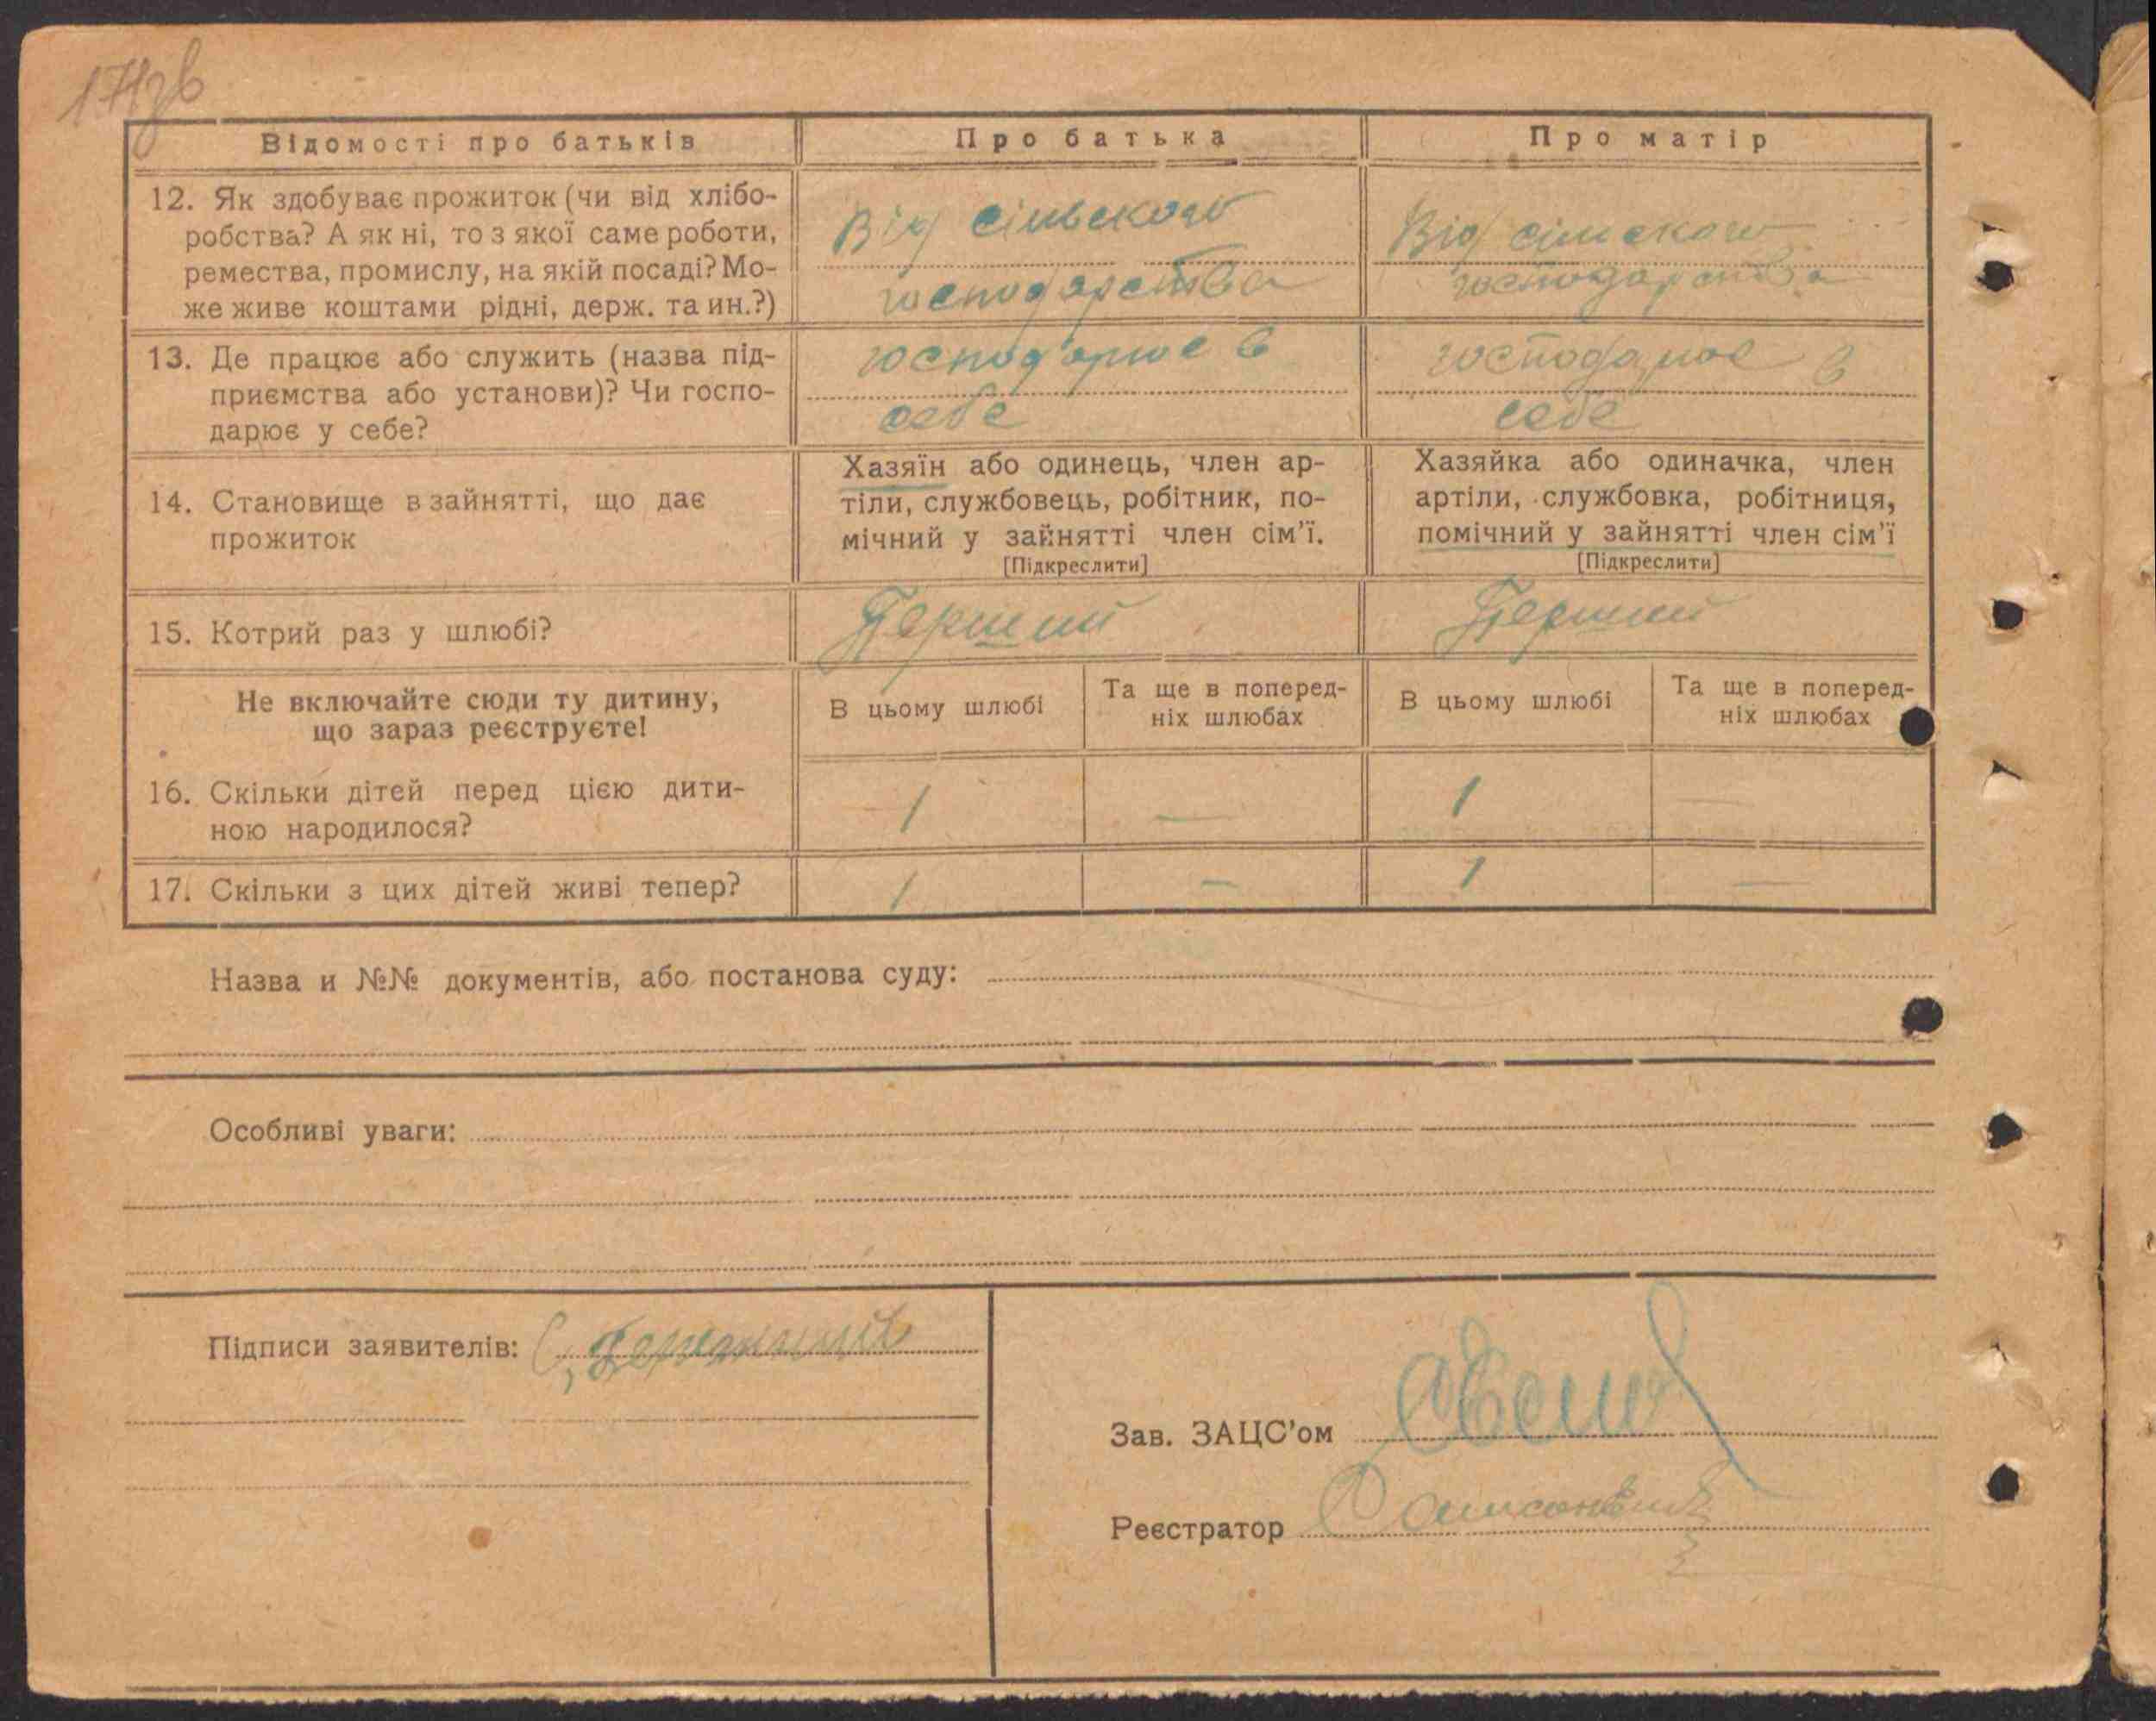 171зв
Відомості про батьків
Про батька
Про матір
12. Як здобуває прожиток (чи від хлібо-
робства? А як ні, то з якої саме роботи,
ремества, промислу, на якій посаді? Мо-
же живе коштами рідні, держ. та ин.?)
Від сільского
господарства
Від сільского
господарства
13. Де працює або служить (назва під-
приємства або установи)? Чи госпо-
дарює у себе?
господарює в
себе
господарює в
себе
14. Становище в зайнятті, що дає
прожиток
Хазяїн або одинець, член ар-
тіли, службовець, робітник, по-
мічний у зайнятті член сім'ї.
[Підкреслити]
Хазяйка або одиначка, член
артіли, службовка, робітниця,
помічний у зайнятті член сім'ї
[Підкреслити]
15. Котрий раз у шлюбі?
Перший
Перший
Не включайте сюди ту дитину,
що зараз реєструєте!
В цьому шлюбі
Та ще в поперед-
ніх шлюбах
В цьому шлюбі
Та ще в поперед-
ніх шлюбах
16. Скільки дітей перед цією дити-
ною народилося?
1
—
1
—
17. Скільки з цих дітей живі тепер?
1
—
1
—
Назва и №№ документів, або постанова суду:
Особливі уваги:
Підписи заявителів:
Зав. ЗАЦС'ом
Реєстратор